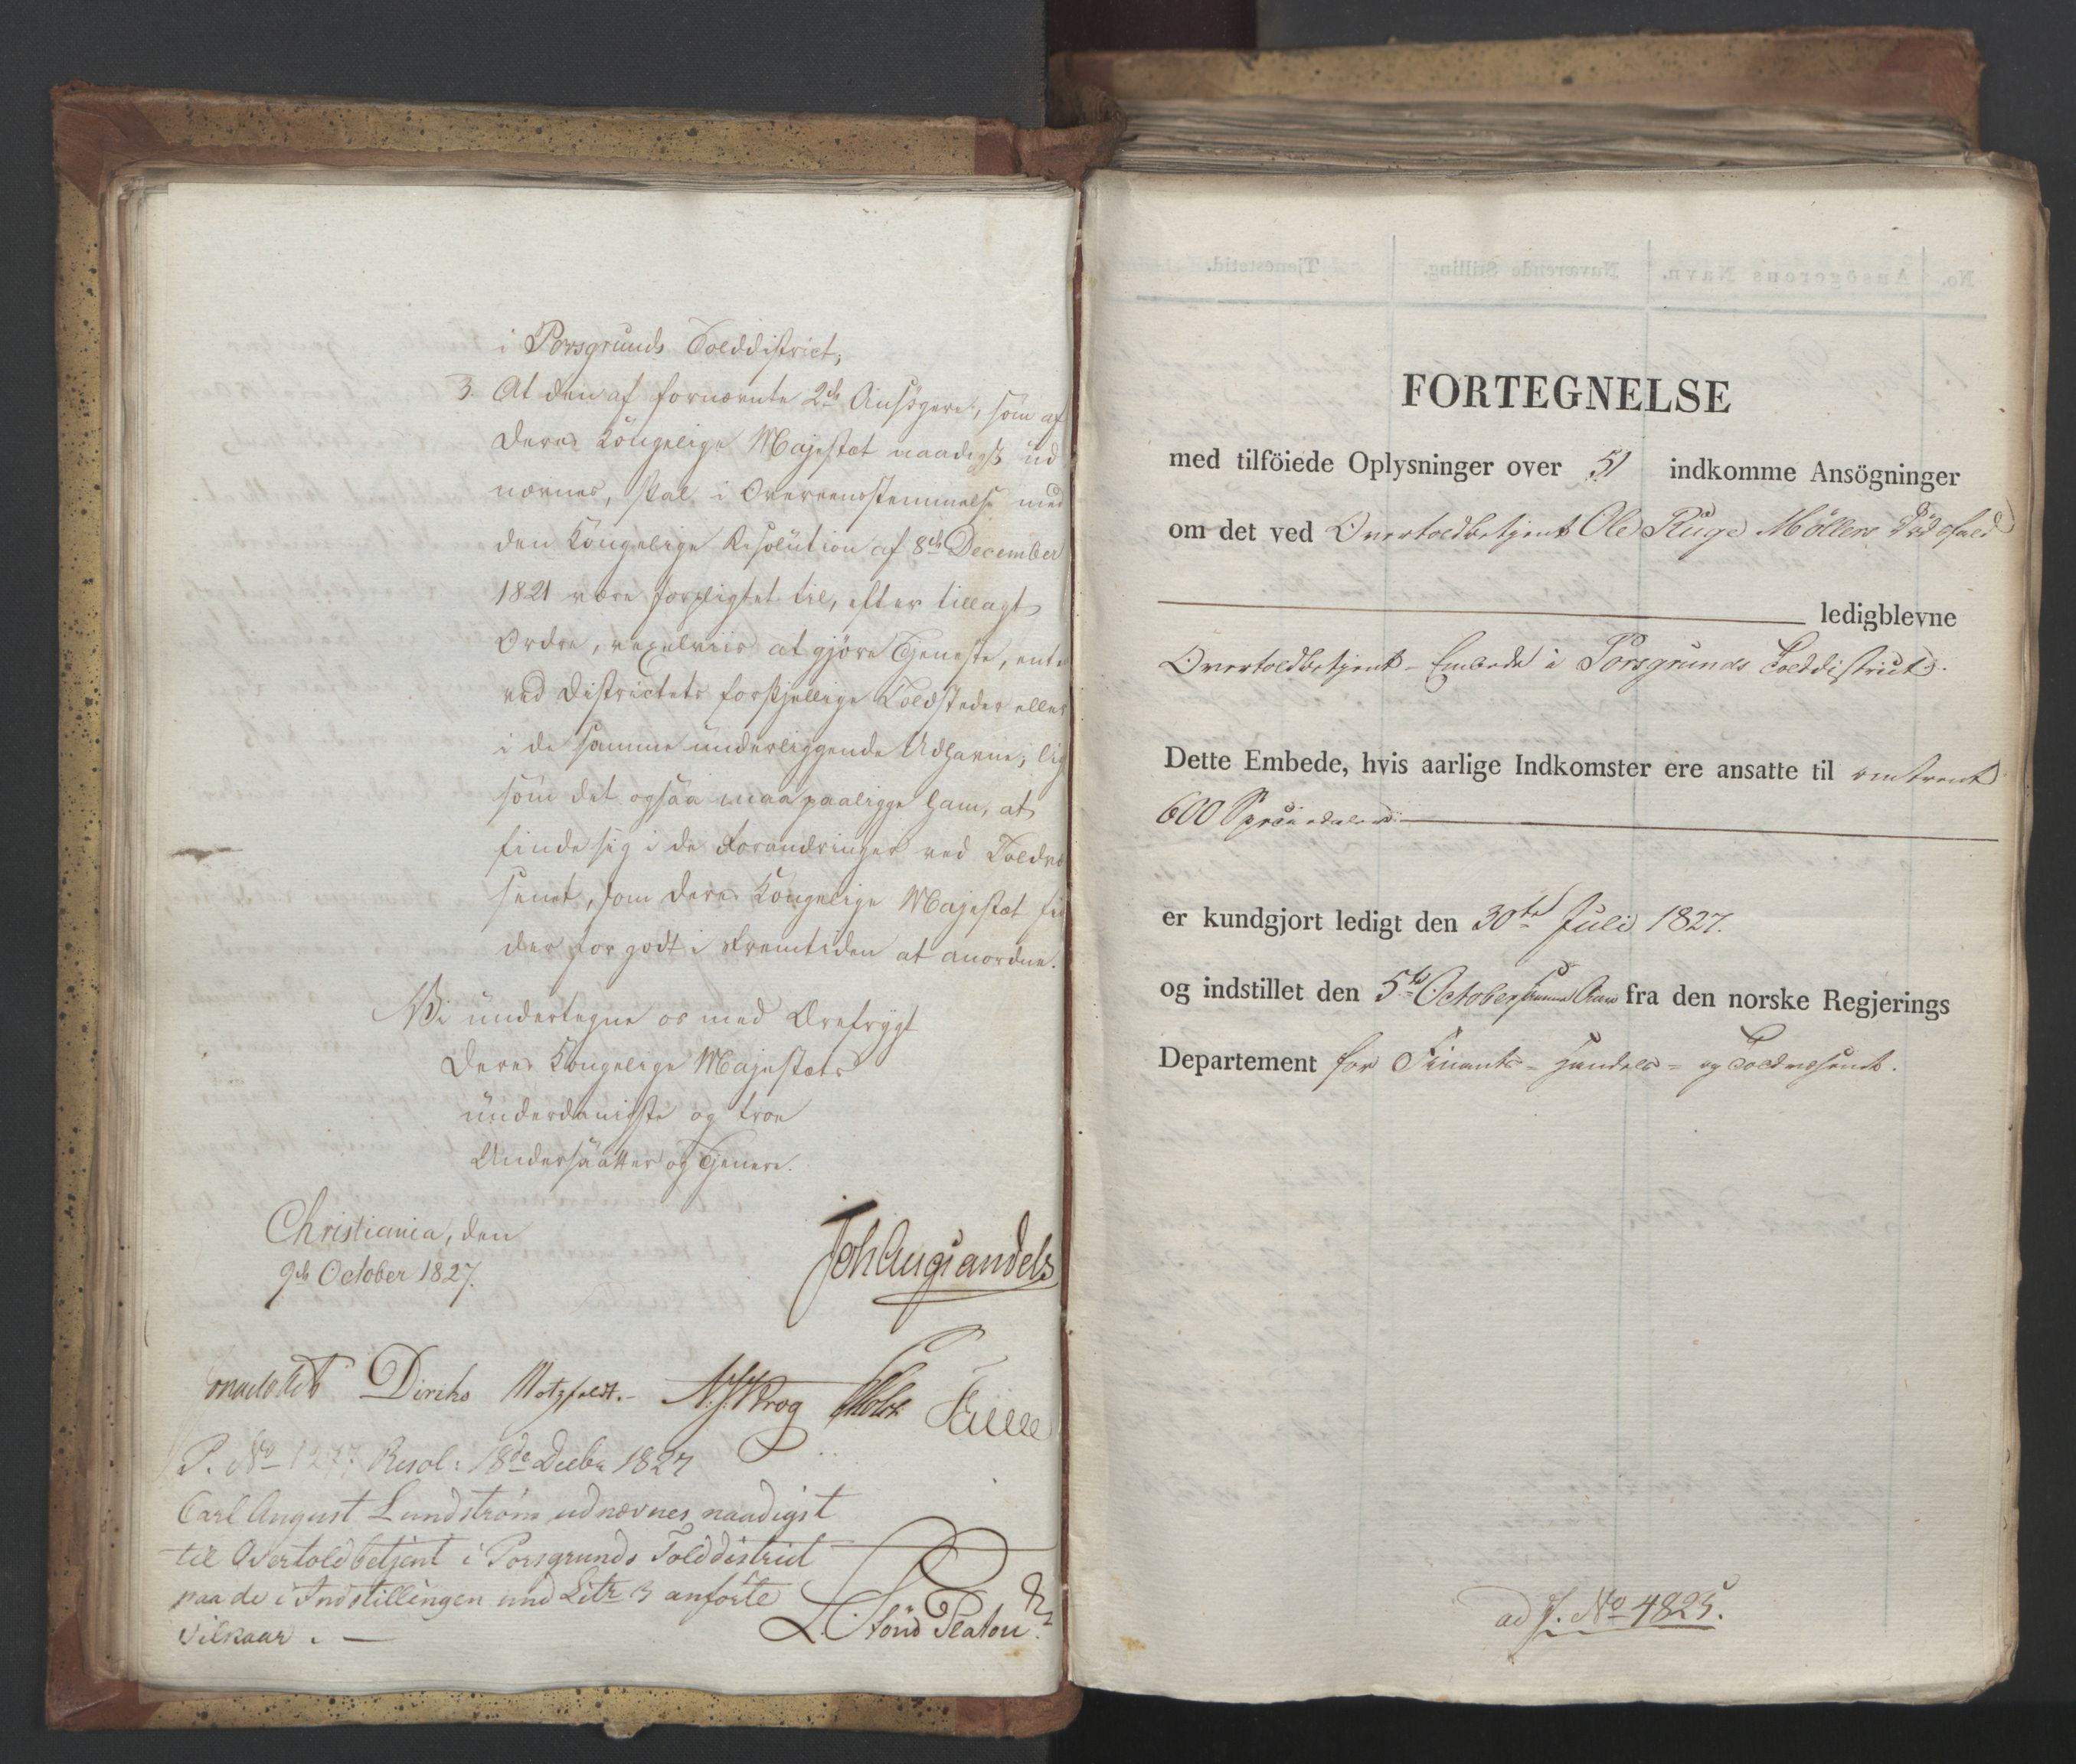 i Porsgrunds Tolddistrict;
3. At den af fornævnte 2de Ansøgere, som af
Deres Kongelige Majestæt naadigst ud
nævnes, skal i Overeensstemmelse med
den Kongelige Resolution af 8de December
1821 være forpligtet til, efter tillagt
Ordre, vexelviis at gjøre Tjeneste, enten
ved Districtets forskjellige Toldsteder eller
i de samme underliggende Udhavne, lig
som det ogsaa maa paaligge ham, at
finde sig i de Forandringer ved Toldvæ
senet, som Deres Kongelige Majestæt fin
der for godt i Fremtiden at anordne.
Vi undertegne os med Ærefrygt
Deres Kongelige Majestæts
underdanigste og troe
Undersaatter og Tjenere.
Christiania, den
9de October 1827.
Joh Aug Sandels
Diriks Motzfeldt. N. J. Krog Holst Fasting
P. No 1277. Resol: 18de Decbr 1827
Carl August Lundstrøm udnævnes naadigst
til Overtoldbetjent i Porsgrunds Tolddistrict
paa de i Indstillingen und Litr 3 anförte
Vilkaar. —
L. Stoud Platou
No. Ansögerens Navn. Nuværende Stilling. Tjenestetid.
FORTEGNELSE
med tilföiede Oplysninger over 51 indkomne Ansögninger
om det ved Overtoldbetjent Ole Ruge Möllers Dödsfald
ledigblevne
Overtoldbetjent-Embede i Porsgrunds Tolddistrict.
Dette Embede, hvis aarlige Indkomster ere ansatte til omtrent
600 Speciedaler
er kundgjort ledigt den 30te Juli 1827.
og indstillet den 5te October samme Aar fra den norske Regjerings
Departement for Finants- Handels- og Toldvæsenet.
ad J. No 4825.